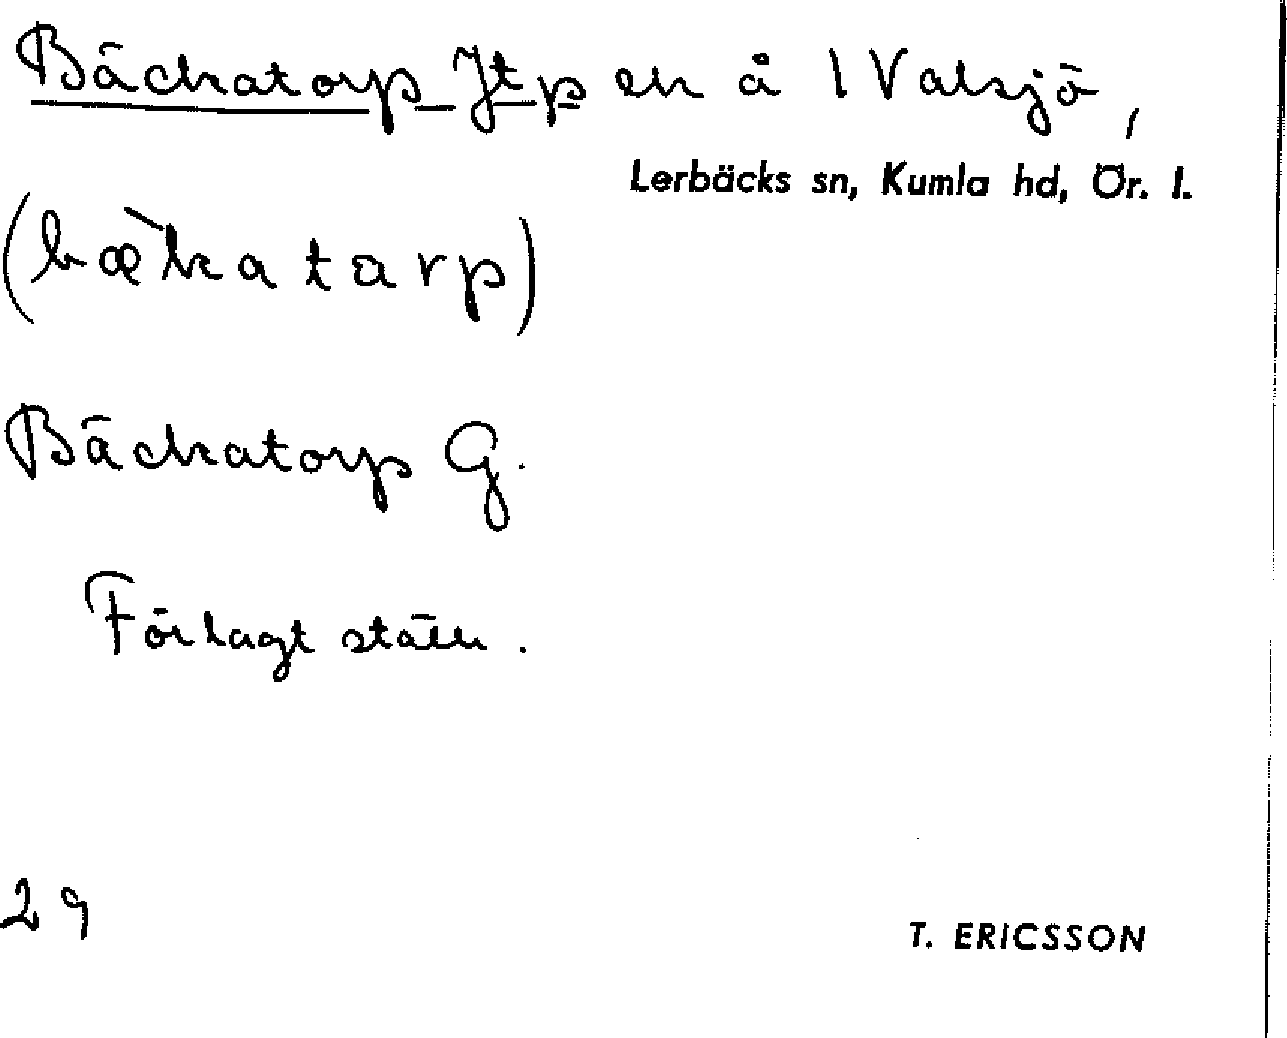 Bäckatorp Jtp en å 1 Valsjö,
Lerbäcks sn, Kumla hd, Ör. l.
(bæ̀katarp)
Bäckatorp G.
Förlagt ställe.
29
T. ERICSSON